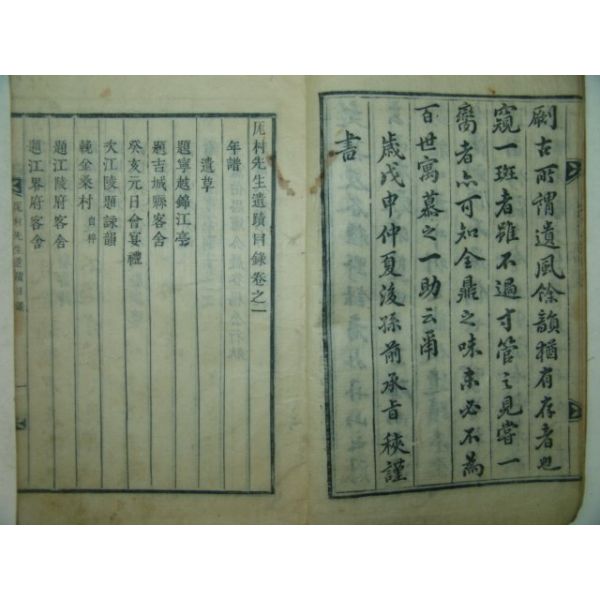 劂古所謂遺風餘韻猶有存者也
窺一斑者雖不過寸管之見嘗一
臠者亦可知全鼎之味未必不為
百世寓慕之一助云甭
歲戊申仲夏後孫前承旨 謹
書
村先生遺蹟目錄卷之一
年譜
遺草
題寧越錦江亭
題吉城縣客舍
癸亥元日會宴禮
次江陵題詠韻
輓金桑村 自粹
題江陵府客舍
題江界府客舍
村先生遺蹟目錄